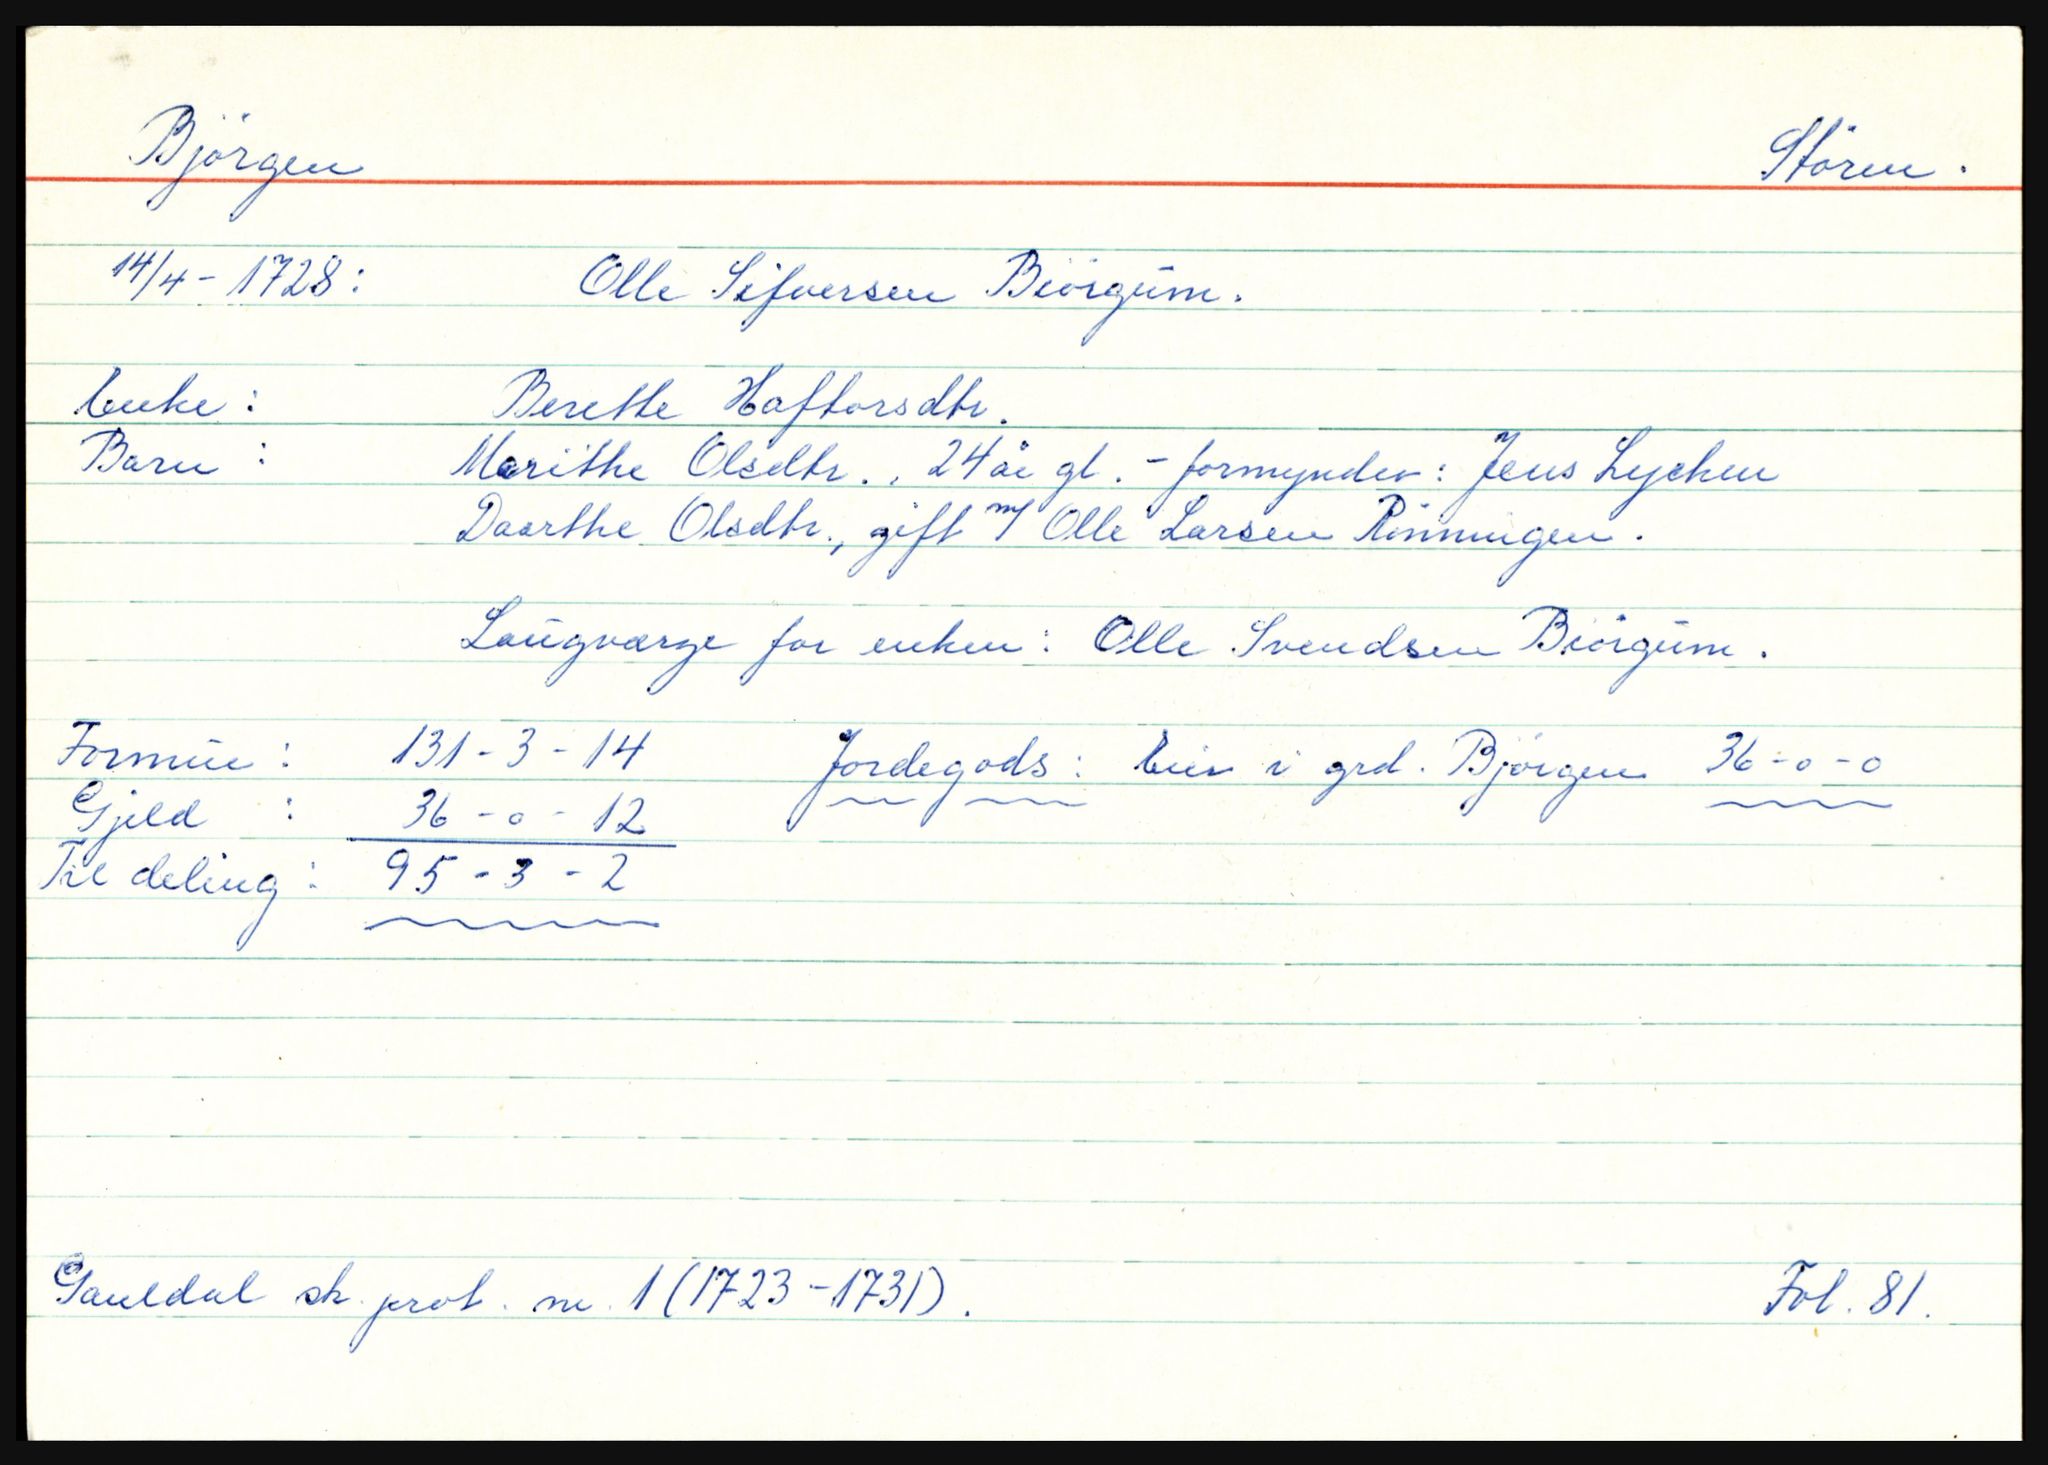 Björgen Stören.
14/4 - 1728: Olle Sifversen Biörgum.
Enke: Berethe Haftorsdtr.
Barn: Marithe Olsdtr., 24 år gl. - formynder: Jens Lycken
Daarthe Olsdtr., gift m/ Olle Larsen Rönningen.
Laugværge for enken: Olle Svendsen Biörgum.
Formue: 131 - 3 - 14 Jordegods: Eier i grd. Björgen 36 - 0 - 0
Gjeld : 36 - 0 - 12
Til deling: 95 - 3 - 2
Gauldal sk. prot. nr. 1 (1723-1731). Fol. 81.